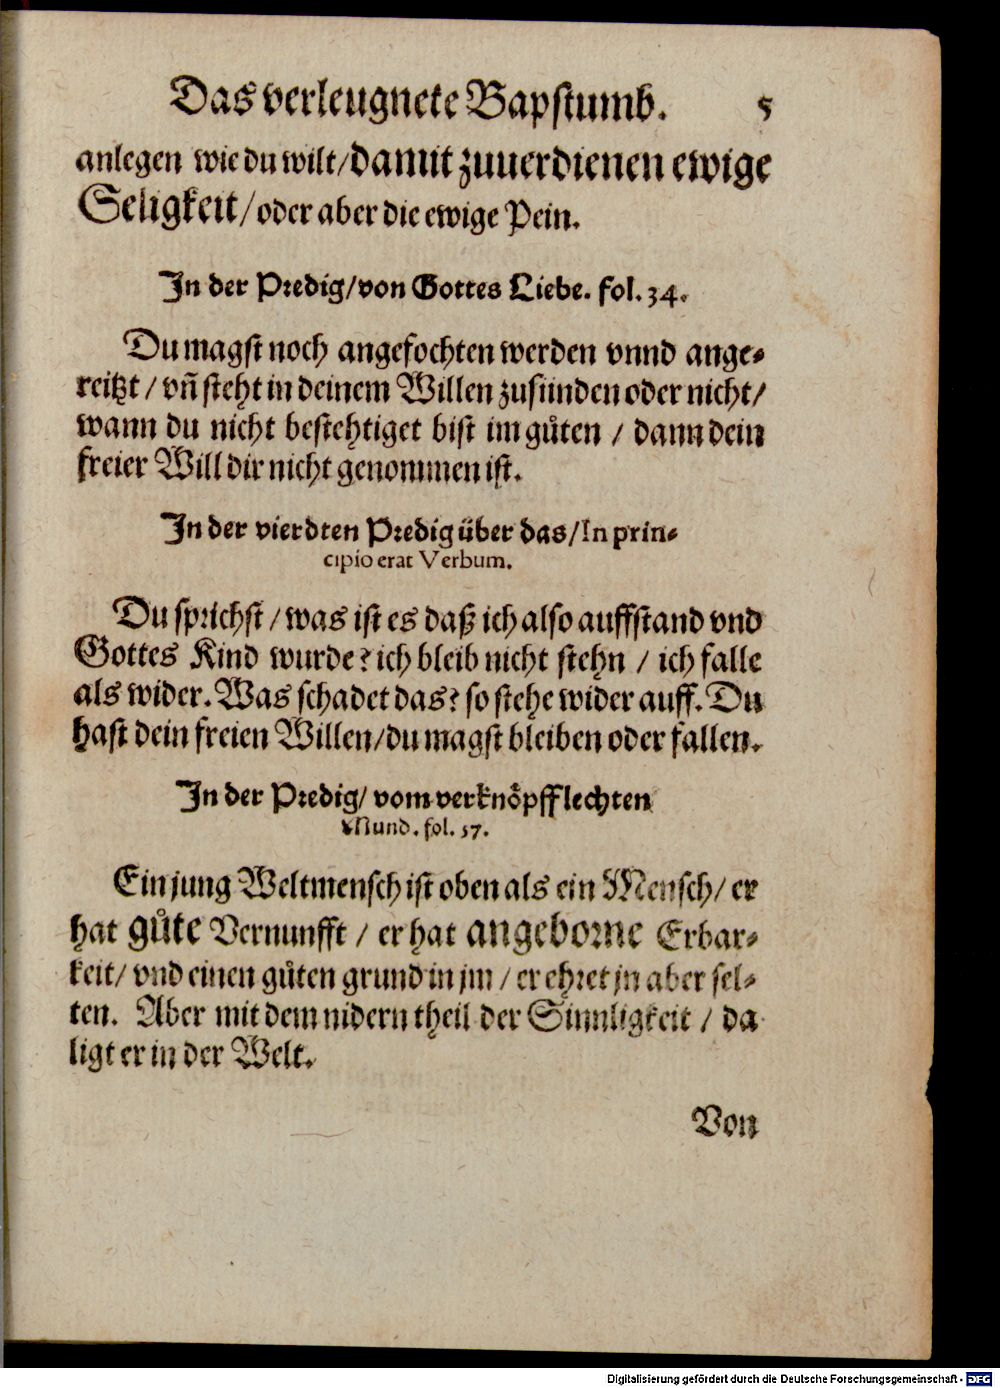 Das verleugnete Bapstumb. 5
anlegen wie du wilt/damit zuuerdienen ewige
Seligkeit/oder aber die ewige Pein.
In der Predig/von Gottes Liebe. fol. 34.
Du magst noch angefochten werden vnnd ange-
reitzt/vñ steht in deinem Willen zusünden oder nicht/
wann du nicht bestehtiget bist im gůten / dann dein
freier Will dir nicht genommen ist.
In der vierdten Predig über das/In prin-
cipio erat Verbum.
Du sprichst/was ist es daß ich also auffstand vnd
Gottes Kind wurde? ich bleib nicht stehn / ich falle
als wider. Was schadet das? so stehe wider auff. Du
hast dein freien Willen/du magst bleiben oder fallen.
In der Predig/ vom verknöpfflechten
Mund. fol. 57.
Ein jung Weltmensch ist oben als ein Mensch/ er
hat gůte Vernunfft / er hat angeborne Erbar-
keit/ vnd einen gůten grund in jm / er ehret jn aber sel-
ten. Aber mit dem nidern theil der Sinnligkeit / da
ligt er in der Welt.
Von
Digitalisierung gefördert durch die Deutsche Forschungsgemeinschaft - DFG